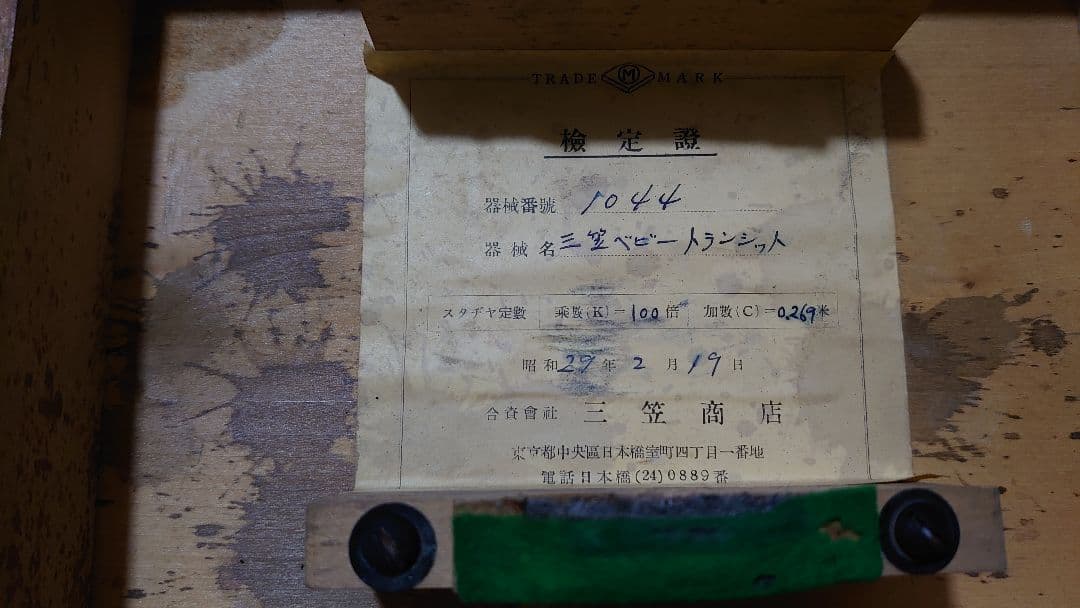 TRADE M MARK
檢定證
器械番號 1044
器械名 三笠ベビートランシット
スタヂヤ定數 乘數(K)=100倍 加數(C)=0.269米
昭和29年2月19日
合資會社 三笠商店
東京都中央區日本橋室町四丁目一番地
電話日本橋(24)0889番